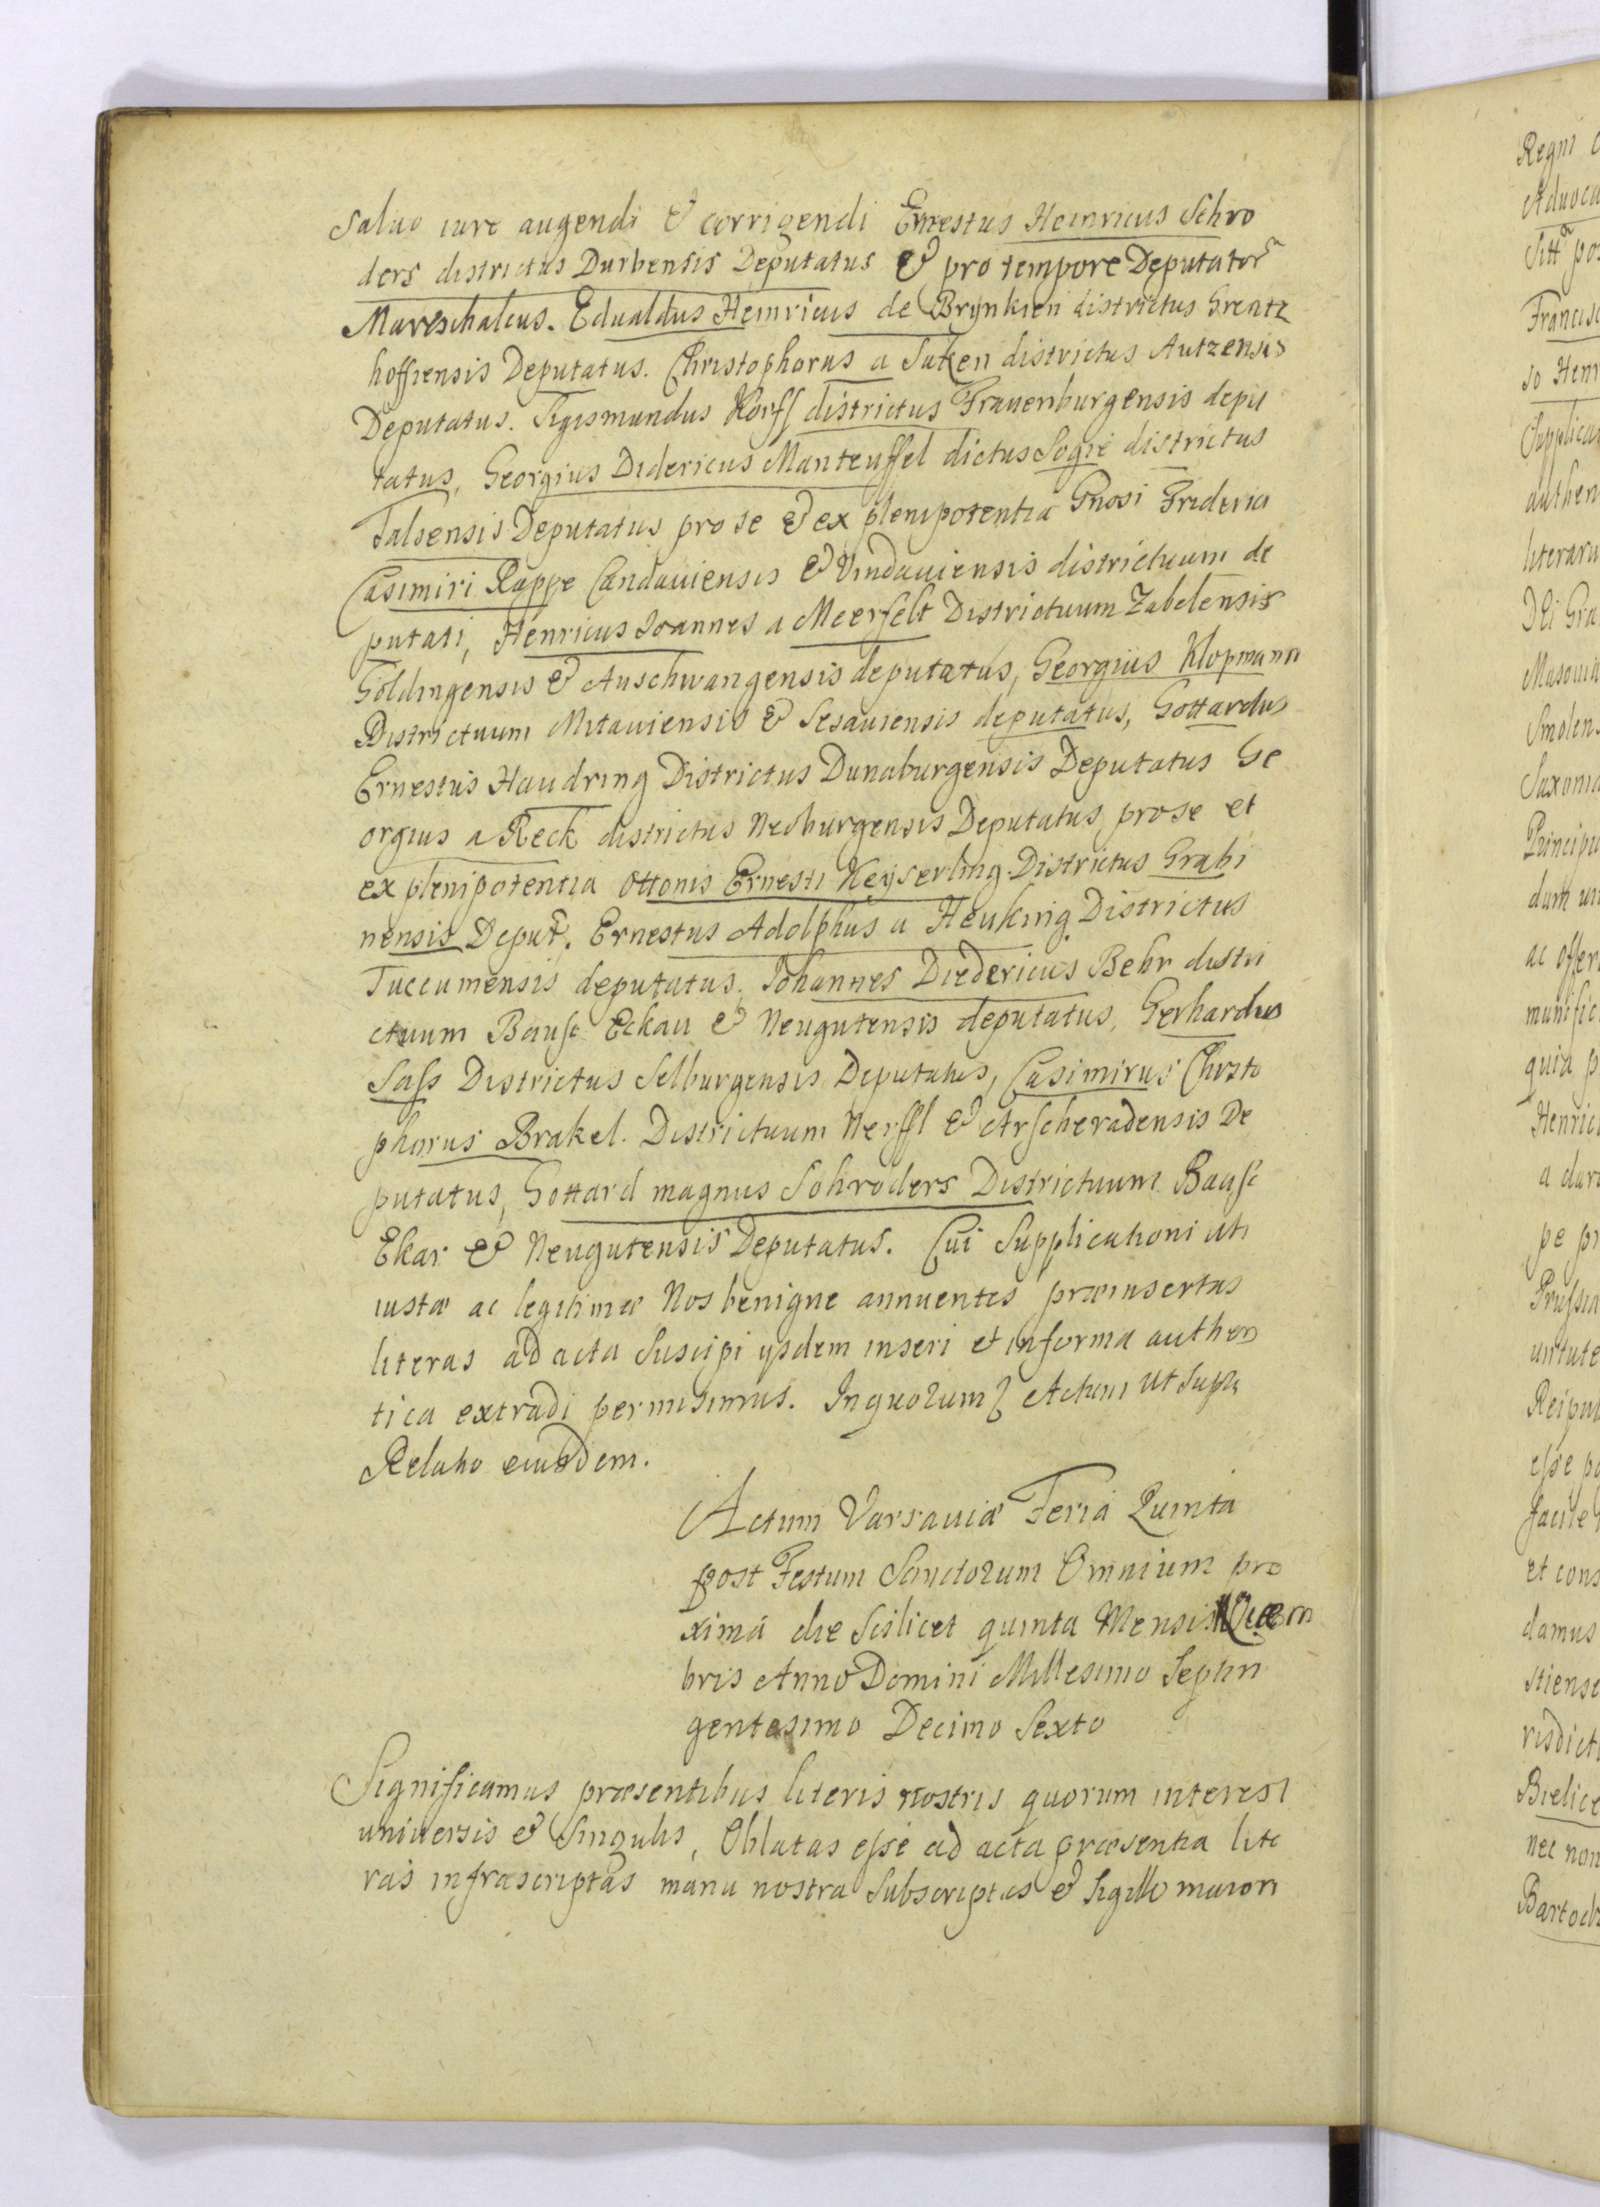 Salvo iure augendi & corrigendi Ernestus Heinricus Schro
ders districtus Durbensis Deputatus & pro tempore Deputator
Mareschalcus. Edualdus Heinricus de Brynkien districtus Grentz
hoffiensis Deputatus. Christophorus a Saken districtus Autzensis
Deputatus. Sigismundus Korff districtus Frauenburgensis depu
tatus, Georgius Didericus Manteuffel dictus Sogie districtus
Talsensis Deputatus pro se & ex plenipotentia Gnosi Friderici
Casimiri Rappe Candaviensis & Vindaviensis districtuum de
putati, Henricus Joannes a Meerfelt Districtuum Zabelensis
Goldingensis & Auschwangensis deputatus, Georgius Klopmann
Districtuum Mitaviensis & Sesaviensis deputatus, Gottardus
Ernestus Haudring Districtus Dunaburgensis Deputatus Ge
orgius a Reck districtus Neoburgensis Deputatus pro se et
ex plenipotentia Ottonis Ernesti Keyserling Districtus Grabi
nensis Deput. Ernestus Adolphus a Heuking Districtus
Tuccumensis deputatus, Johannes Diedericus Behr distri
ctuum Bausc Eckau & Neugutensis deputatus, Gerhardus
Sass Districtus Selburgensis Deputatus, Casimirus Chrsto
phorus Brakel. Districtuum Nerffl & Arscheradensis De
putatus, Gottard magnus Schroders Districtuum Bausc
Ekar & Neugutensis Deputatus. Cui Supplicationi uti
iustæ ac legitimæ Nos benigne annuentes præinsertas
literas ad acta Suscipi ysdem inseri et in forma authen
tica extradi permisimus. In quorum Actum ut Supra
Relatio eiusdem.
Actum Varsaviæ Feria Quinta
post Festum Sanctorum Omnium pro
xima die Scilicet quinta Mensis
bris Anno Domini Millesimo Septin
gentesimo Decimo Sexto
Significamus præsentibus literis nostris quorum interest
universis & Singulis, Oblatas esse ad acta præsentia lite
ras infrascriptas manu nostra Subscriptas & Sigillo maiori
Regni
Advoca
Francisc
so Henr
Supplica
authen
literaru
DEi Gra
Masovia
Smolens
Saxonia
Principu
dum
ac offer
munific
quia p
Henrici
a dar
pe pr
Prussia
virtute
Reipub
esse po
facile
et cons
damus
stiense
risdicti
Bielice
nec non
Bartoch